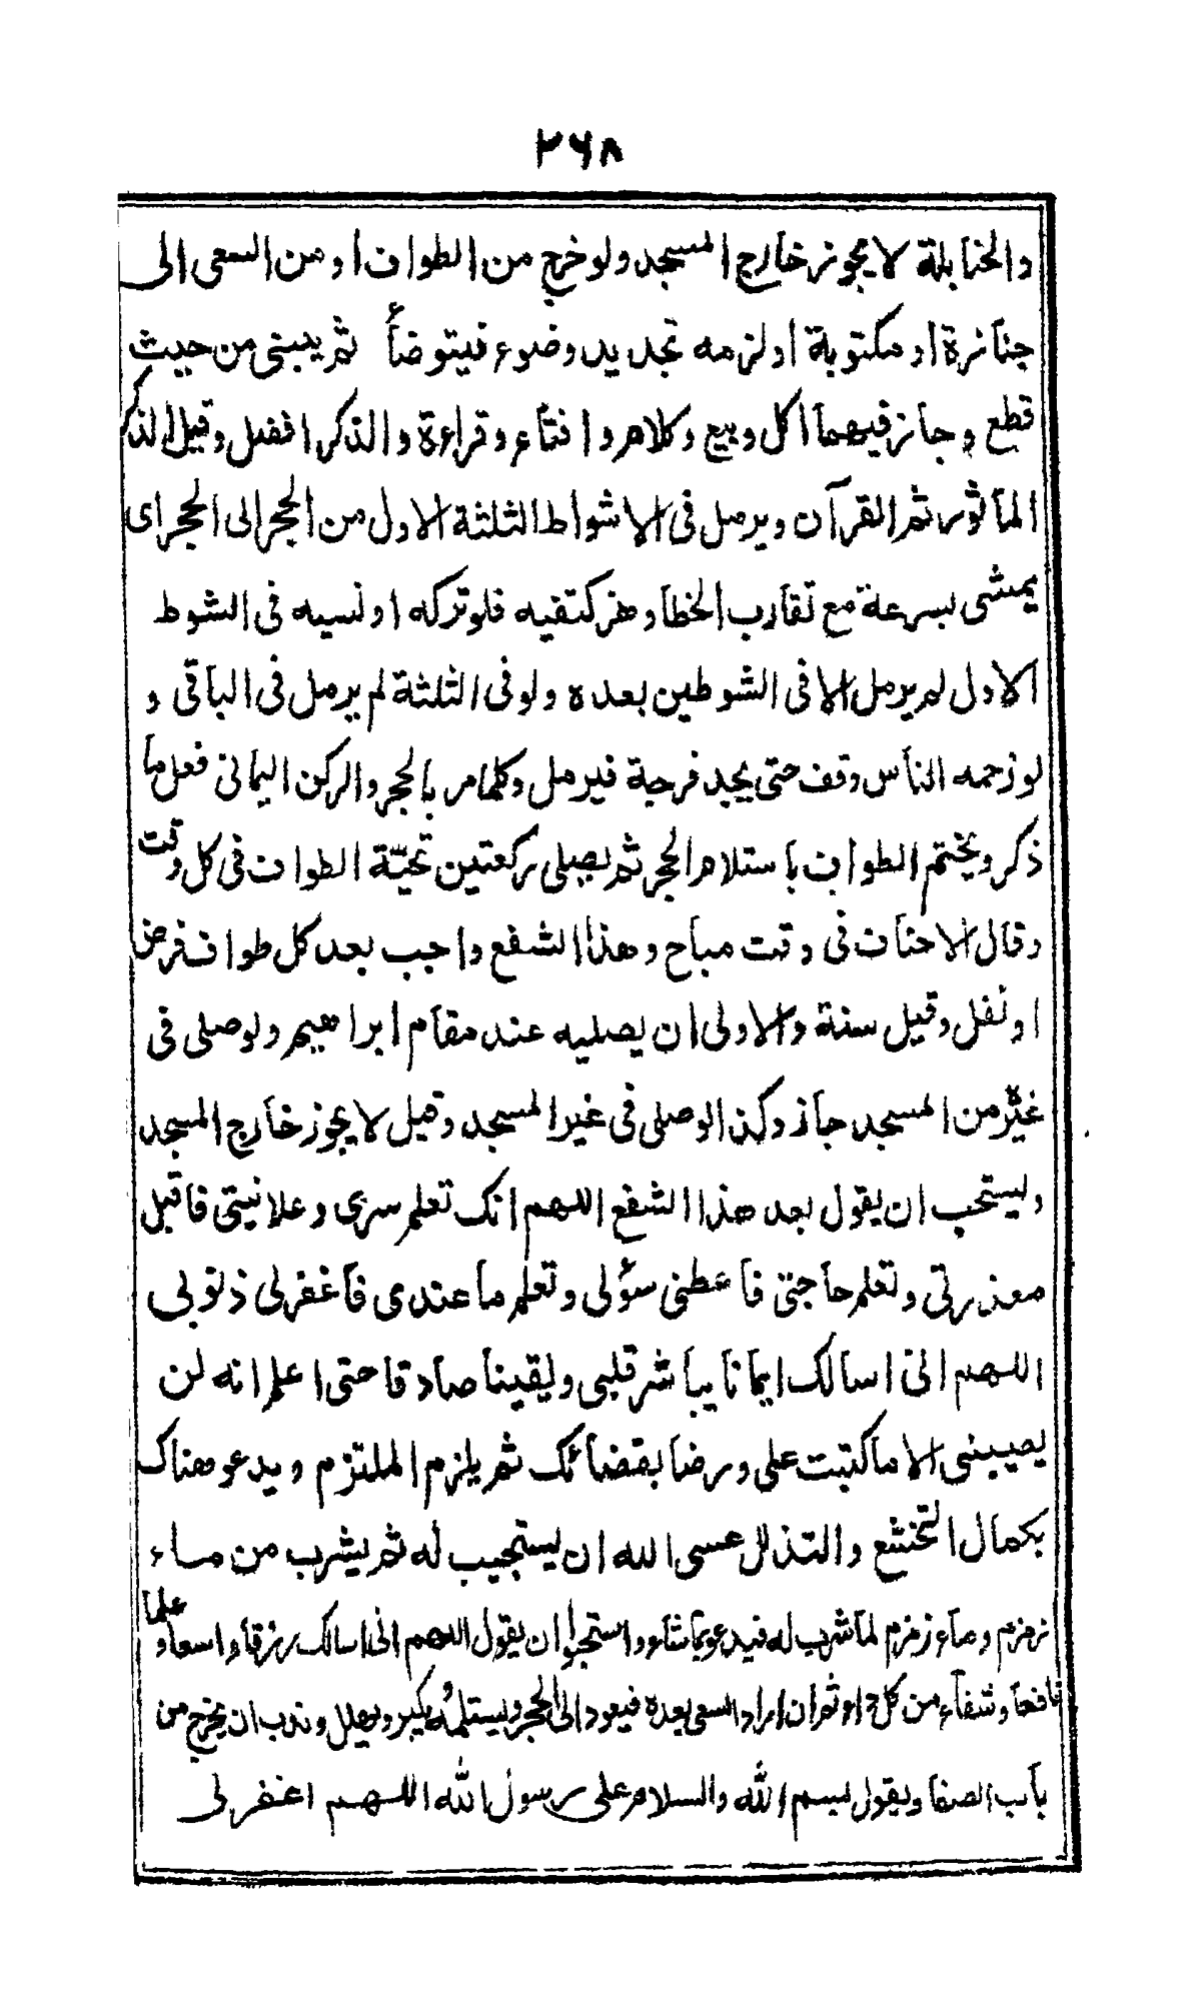 ۲۶۸
والحنابلة لا یجوز خارج المسجد ولو خرج من الطواف او من السعی الی
جنازة او مکتوبة او لزمه تجدید وضوء فیتوضأ ثم یبنی من حیث
قطع و جاز فیهما اکل و بیع و کلام و افتاء و قراءة و الذکر افضل و قیل الذکر
المأثور ثم القرآن و یرمل فی الاشواط الثلثة الاول من الحجر الی الحجر ای
یمشی بسرعة مع تقارب الخطا و هز کتفیه فلو ترکه او نسیه فی الشوط
الاول لم یرمل الا فی الشوطین بعده و لو فی الثلثة لم یرمل فی الباقی و
لو زحمه الناس وقف حتی یجد فرجة فیرمل و کلما مر بالحجر و الرکن الیمانی فعل ما
ذکر و یختم الطواف باستلام الحجر ثم یصلی رکعتین تحیّة الطواف فی کل وقت
و قال الاحناف فی وقت مباح و هذا الشفع واجب بعد کل طواف فرض
او نفل و قیل سنة و الاولی ان یصلیه عند مقام ابراهیم و لو صلی فی
غیره من المسجد جاز و کذا لو صلی فی غیر المسجد و قیل لا یجوز خارج المسجد
و یستحب ان یقول بعد هذا الشفع اللهم انک تعلم سری و علانیتی فاقبل
معذرتی و تعلم حاجتی فاعطنی سؤلی و تعلم ما عندی فاغفر لی ذنوبی
اللهم انی اسالک ایمانا یباشر قلبی و یقینا صادقا حتی اعلم انه لن
یصیبنی الا ما کتبت علی و رضا بقضائک ثم یلزم الملتزم و یدعو هناک
بکمال التخشع و التذلل عسی الله ان یستجیب له ثم یشرب من ماء
زمزم و ماء زمزم لما شرب له فیدعو بما شاء و استحبوا ان یقول اللهم انی اسالک رزقا واسعا و علما
نافعا و شفاء من کل داء ثم ان اراد السعی بعده فیعود الی الحجر و یستلمه و یکبر و یهلل و ندب ان یخرج من
باب الصفا و یقول بسم الله والسلام علی رسول الله اللهم اغفر لی